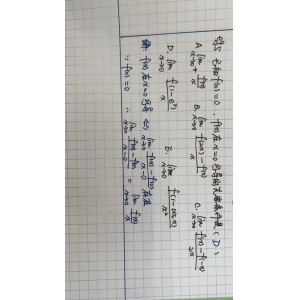 例5 已知f(0)=0, f(x)在x=0可导的充要条件是( D )
A. lim x→0+ f(x)/x B. lim x→0 f(2x)-f(x)/x C. lim x→0 f(x)-f(-x)/2x
D. lim x→0 f(1-e^x)/x E. lim x→0 f(1-cosx)/x²
解: f(x)在x=0可导 ⇔ lim x→0 f(x)-f(0)/x-0 存在
∵ f(0)=0 ∴ lim x→0 f(x)-f(0)/x-0 = lim x→0 f(x)/x